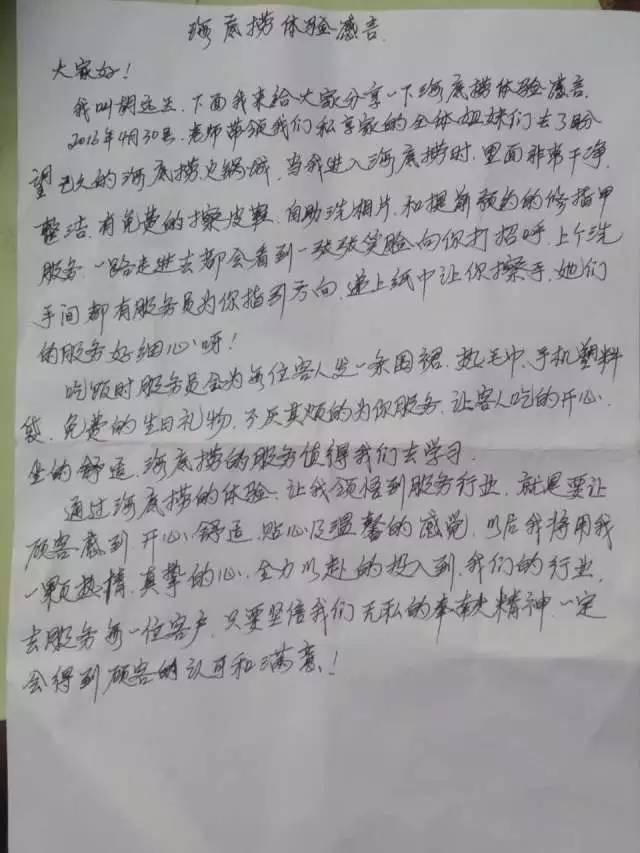 海底捞体验感言
大家好！
我叫胡运兰，下面我来给大家分享一下海底捞体验感言，
2016年4月30号，老师带领我们私享家的全体姐妹们去了盼
望已久的海底捞火锅城，当我进入海底捞时，里面非常干净，
整洁，有免费的擦皮鞋，自助洗相片，和提前预约的修指甲
服务，一路走进去都会看到一张张笑脸向你打招呼，上个洗
手间都有服务员为你指引方向，递上纸巾让你擦手，她们
的服务好细心呀！
吃饭时服务员会为每位客人发一条围裙、热毛巾、手机塑料
袋、免费的生日礼物，不厌其烦的为你服务，让客人吃的开心，
坐的舒适，海底捞的服务值得我们去学习．
通过海底捞的体验，让我领悟到服务行业，就是要让
顾客感到开心、舒适、贴心及温馨的感觉，以后我将用我
一颗热情、真挚的心，全力以赴的投入到，我们的行业，
去服务每一位客户，只要坚信我们无私的奉献精神，一定
会得到顾客的认可和满意！